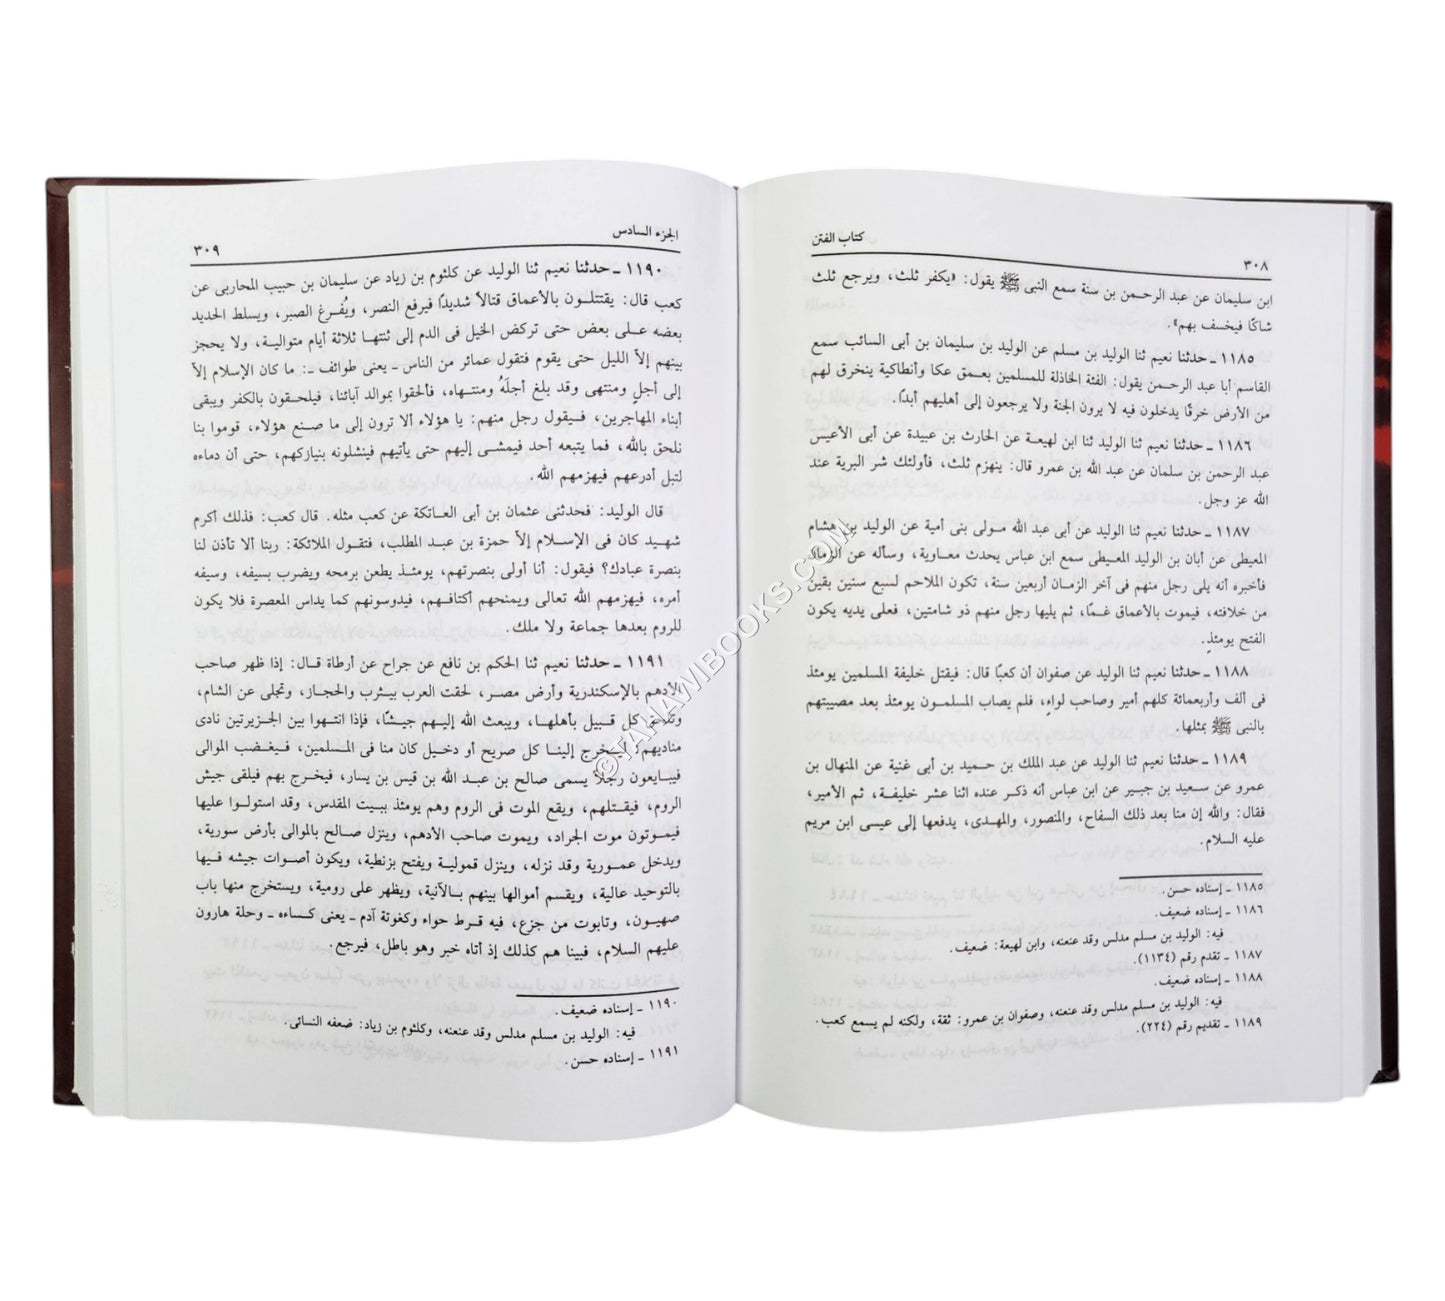 كتاب الفتن
٣٠٨
ابن سليمان عن عبد الرحمن بن سنة سمع النبى ﷺ يقول: «يكفر ثلث، ويرجع ثلث
شاكًا فيخسف بهم».
١١٨٥ ـ حدثنا نعيم ثنا الوليد بن مسلم عن الوليد بن سليمان بن أبى السائب سمع
القاسم أبا عبد الرحمن يقول: الفئة الخاذلة للمسلمين بعمق عكا وأنطاكية ينخرق لهم
من الأرض خرقًا يدخلون فيه لا يرون الجنة ولا يرجعون إلى أهليهم أبدًا.
١١٨٦ ـ حدثنا نعيم ثنا الوليد ثنا ابن لهيعة عن الحارث بن عبيدة عن أبى الأعيس
عبد الرحمن بن سلمان عن عبد الله بن عمرو قال: ينهزم ثلث، فأولئك شر البرية عند
الله عز وجل.
١١٨٧ ـ حدثنا نعيم ثنا الوليد عن أبى عبد الله مـولى بنى أمية عن الوليد بن هشام
المعيطى عن أبان بن الوليد المعيطى سمع ابن عباس يحدث معـاوية، وسأله عن الزمان
فأخبره أنه يلى رجل منهم فى آخر الزمان أربعين سنة، تكون الملاحم لسبع سنين بقين
من خلافته، فيموت بالأعماق غمًـا، ثم يليها رجل منهم ذو شامتين، فعلى يديه يكون
الفتح يومئذٍ.
١١٨٨ ـ حدثنا نعيم ثنا الوليد عن صفوان أن كعبًا قال: فيقتل خليفة المسلمين يومئذ
فى ألف وأربعمائة كلهم أمير وصاحب لواءٍ، فلم يصاب المسلمـون يومئذ بعد مصيبتهم
بالنبى ﷺ بمثلها.
١١٨٩ ـ حدثنا نعيم ثنا الوليد عن عبد الملك بن حـميد بن أبى غنية عن المنهال بن
عمرو عن سعـيد بن جبير عن ابن عباس أنه ذكـر عنده اثنا عشر خليفـة، ثم الأمير،
فقال: والله إن منا بعد ذلك السفاح، والمنصور، والمهدى، يدفعها إلى عيسى ابن مريم
عليه السلام.
١١٨٥ ـ إسناده حسن.
١١٨٦ ـ إسناده ضعيف.
فيه: الوليد بن مسلم مدلس وقد عنعنه، وابن لهيعة: ضعيف.
١١٨٧ ـ تقدم رقم (١١٣٤).
١١٨٨ ـ إسناده ضعيف.
فيه: الوليد بن مسلم مدلس وقد عنعنه، وصفوان بن عمرو: ثقة، ولكنه لم يسمع كعب.
١١٨٩ ـ تقديم رقم (٢٢٤).
الجزء السادس
٣٠٩
١١٩٠ ـ حدثنا نعيم ثنا الوليد عن كلثوم بن زياد عن سليمان بن حبيب المحاربى عن
كعب قال: يقتتلـون بالأعماق قتالاً شديدًا فيرفع النصر، ويُفـرغ الصبر، ويسلط الحديد
بعضه علـى بعض حتى تركض الخيل فى الدم إلى ثنتهـا ثلاثة أيام متواليـة، ولا يحجز
بينهم إلاّ الليل حتى يقوم فتقول عمائر من الناس ـ يعنى طوائف ـ: ما كان الإسلام إلاّ
إلى أجلٍ ومنتهى وقد بلغ أجلَهُ ومنتـهاه، فألحقوا بمـوالد آبائنا، فيلحقـون بالكفر ويبقى
أبناء المهاجرين، فـيقول رجل منهم: يا هؤلاء ألا ترون إلى ما صنع هؤلاء، قوموا بنا
نلحق بالله، فما يتبعه أحد فيمشـى إليهم حتى يأتيهم فينشلونه بنيازكهم، حتى أن دماءه
لتبل أدرعهم فيهزمهم الله.
قال الوليد: فحدثنى عثمان بن أبى العـاتكة عن كعب مثله. قال كعب: فذلك أكرم
شهيد كان فى الإسـلام إلاّ حمزة بن عـبد المطلب، فتقول الملائكة: ربنا ألا تأذن لنا
بنصرة عبادك؟ فيقول: أنا أولى بنصرتهم، يومئـذ يطعن برمحه ويضرب بسيفه، وسيفه
أمره، فيهزمهم الله تعالى ويمنحهم أكتافـهم، فيدوسونهم كما يداس المعصرة فلا يكون
للروم بعدها جماعة ولا ملك.
١١٩١ ـ حدثنا نعيم ثنا الحكم بن نافع عن جراح عن أرطاة قـال: إذا ظهر صاحب
الأدهم بالإسكندرية وأرض مصـر، لحقت العرب بـيثرب والحجاز، وتجلى عن الشام،
وتلحق كل قبـيل بأهلهـا، ويبعث الله إليـهم جيـشًـا، فإذا انتهـوا بين الجـزيرتين نادى
مناديهم: ليـخرج إلينـا كل صريح أو دخـيل كان منا فى المسلمين، فـيغـضب الموالى
فيبـايعون رجـلاً يسمى صالح بن عـبد الله بن قيس بن يسار، فيخـرج بهم فيلقى جيش
الروم، فيـقتلهم، ويقع الموت فى الروم وهم يومئـذ بـبيت المقدس، وقد استولـوا عليها
فيمـوتون موت الجراد، ويموت صاحب الأدهم، وينزل صـالح بالموالى بأرض سورية،
ويدخل عمـورية وقد نزله، وينزل قمـولية ويفتح بزنطية، ويكون أصـوات جيشه فـيها
بالتوحيد عالية، ويقسم أموالها بينهم بـالآنية، ويظهر على رومية، ويستخرج منها باب
صهيون، وتابوت من جزع، فيه قـرط حواء وكغوتة آدم ـ يعنى كساءه ـ وحلة هارون
عليهم السلام، فبينا هم كذلك إذ أتاه خبر وهو باطل، فيرجع.
١١٩٠ ـ إسناده ضعيف.
فيه: الوليد بن مسلم مدلس وقد عنعنه، وكلثوم بن زياد: ضعفه النسائى.
١١٩١ ـ إسناده حسن.
©TAHAWIBOOKS.COM